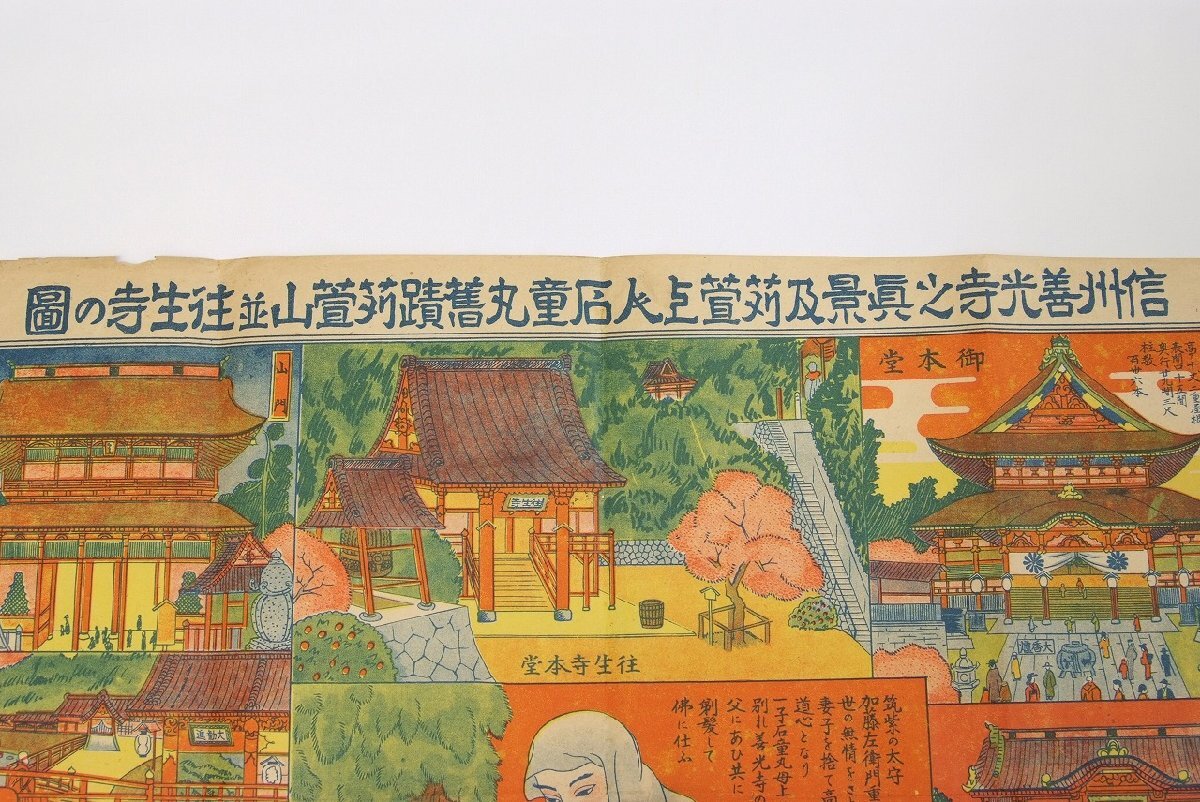 信州善光寺之眞景及苅萱上人石童丸舊蹟苅萱山並往生寺の圖
御本堂
奥行廿九間三尺
柱数百卅六本
大香爐
往生寺
往生寺本堂
山門
大勧進
筑紫の太守
加藤左衛門重
世の無情をさ
妻子を捨て高
道心となり
一子石童丸母上
別れ善光寺の
父にあひ共に
剃髪して
佛に仕ふ